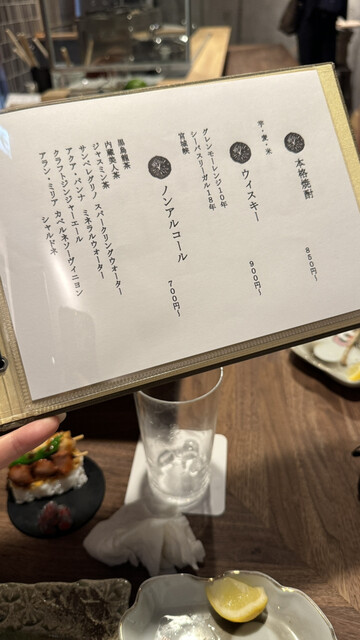 本格焼酎 850円~
芋・麦・米
ウィスキー 900円~
グレンモーレンジ10年
シーバスリーガル18年
宮城峡
ノンアルコール 700円~
黒烏龍茶
内蔵美人茶
ジャスミン茶
サンペレグリノ スパークリングウォーター
アクア・パンナ ミネラルウォーター
クラフトジンジャーエール
アラン・ミリア カベルネソーヴィニヨン
シャルドネ